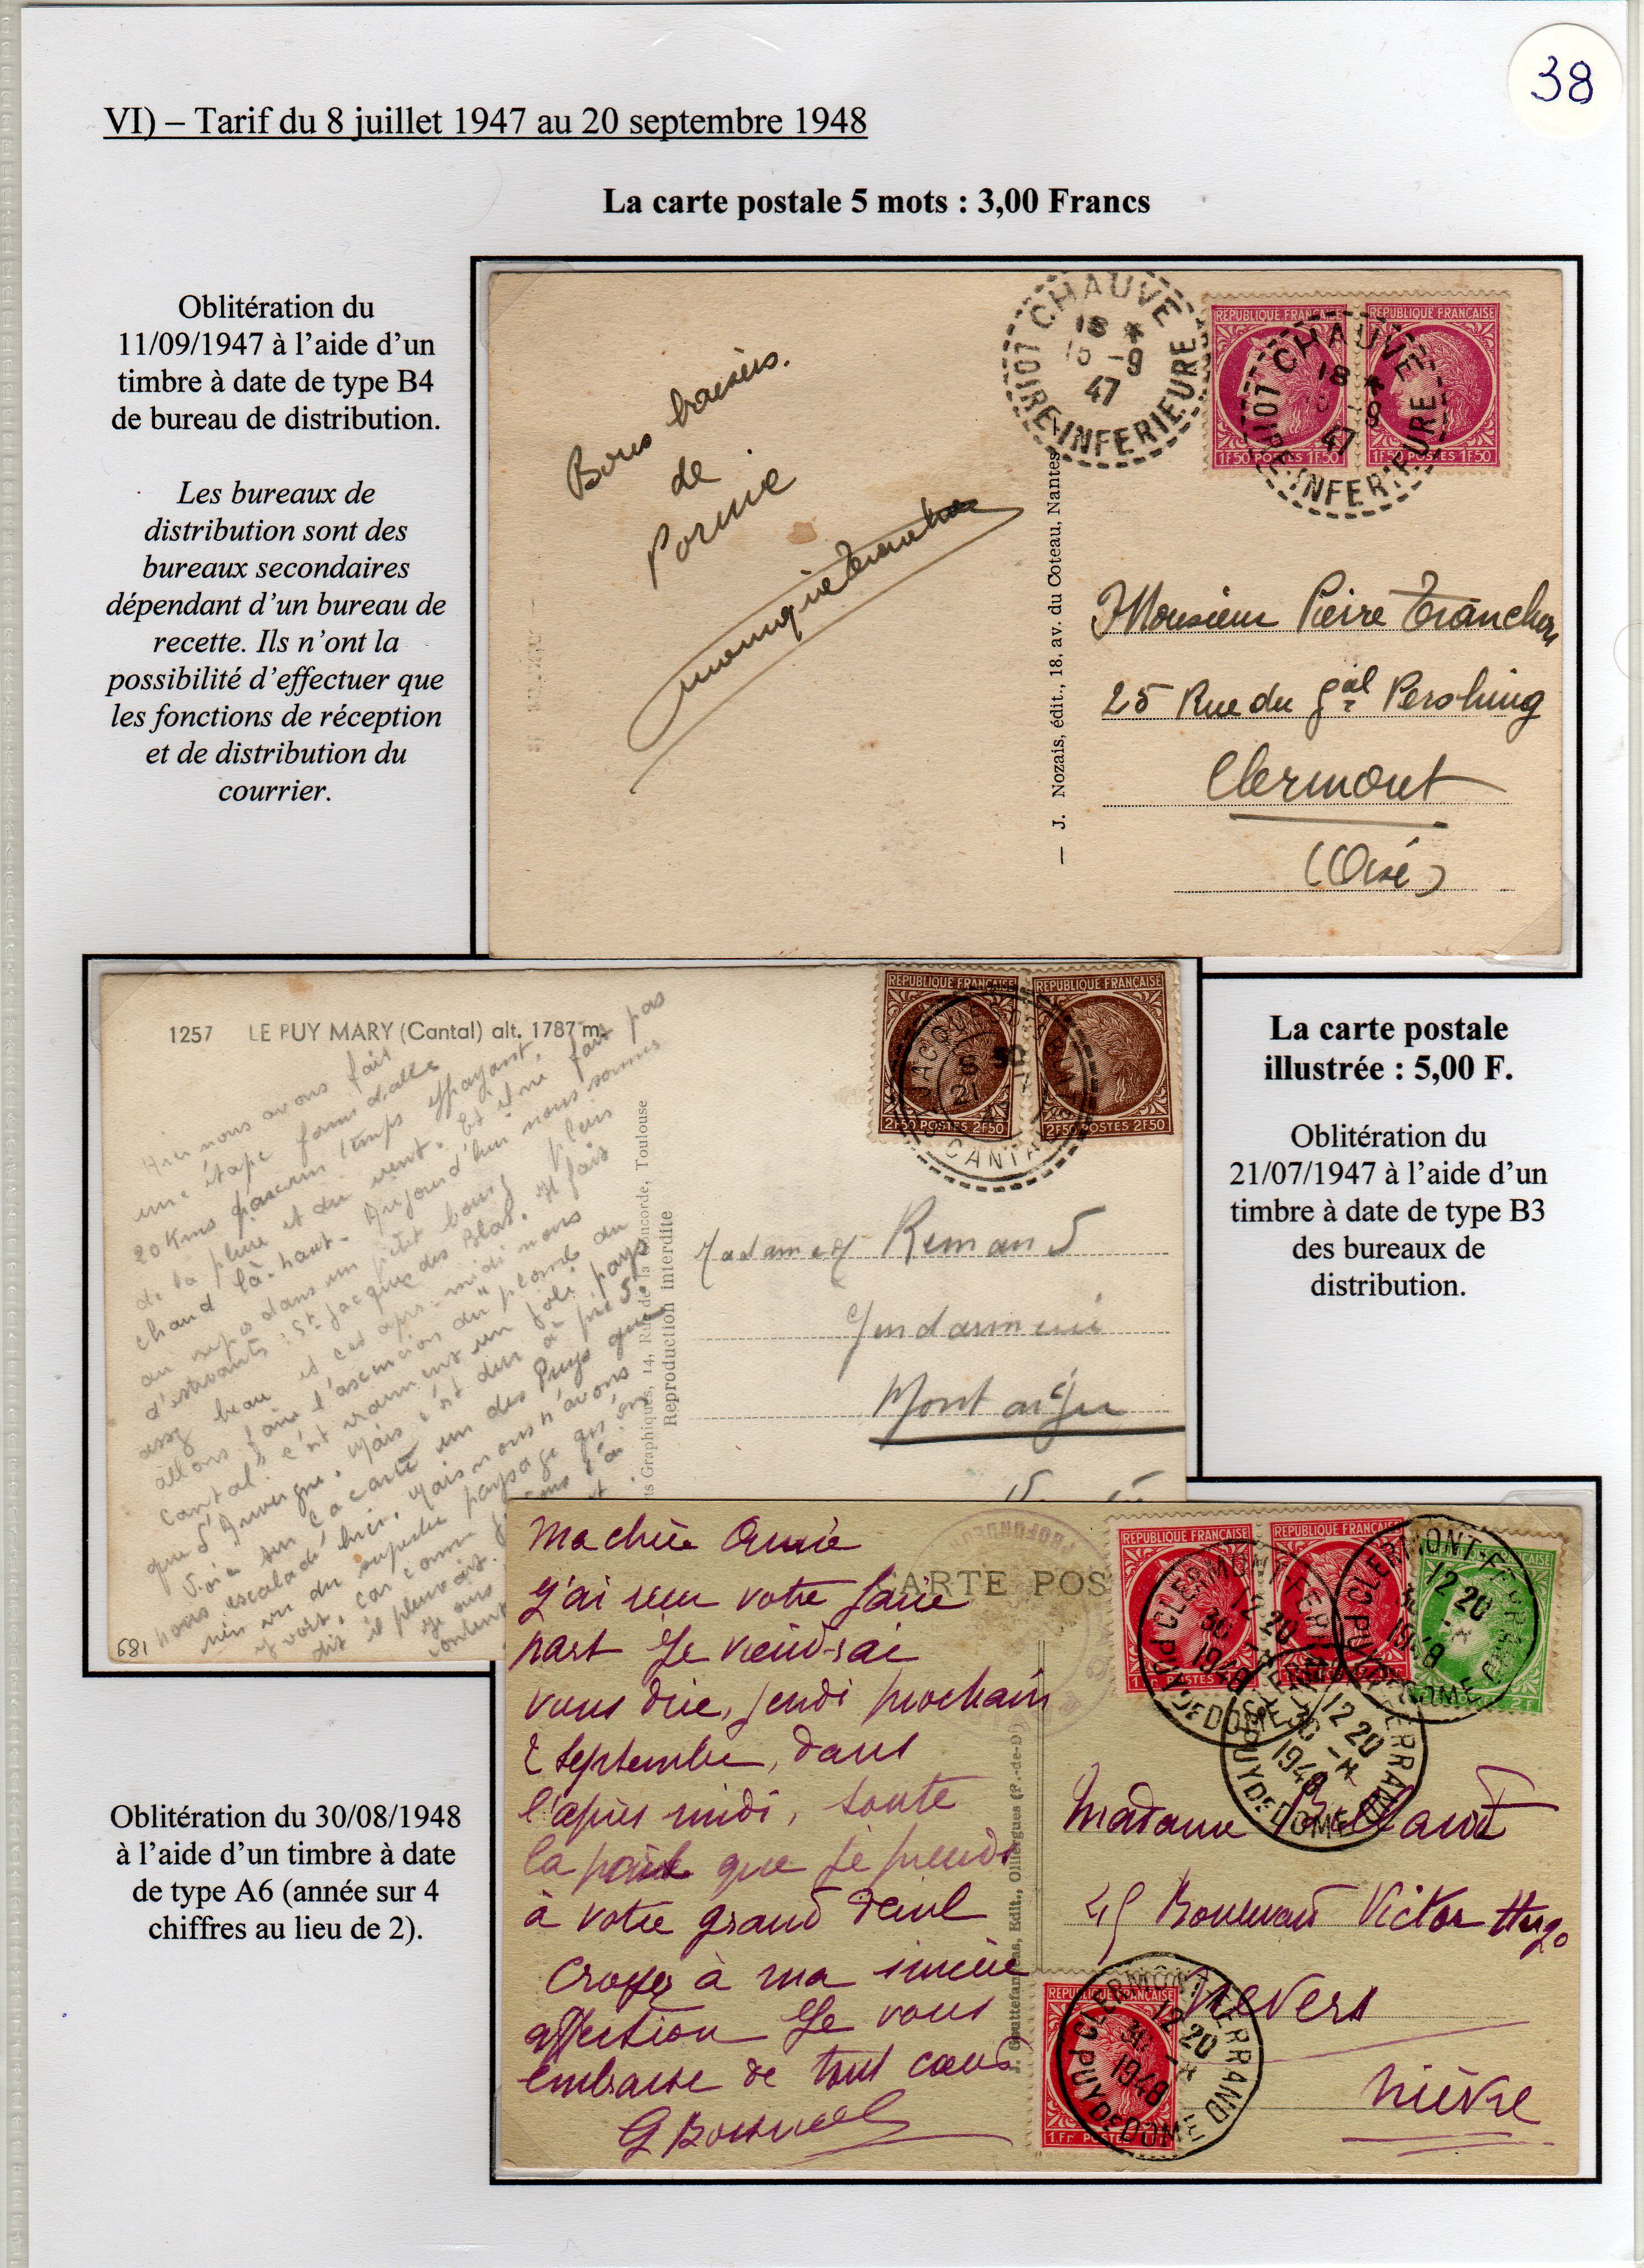 38
VI) – Tarif du 8 juillet 1947 au 20 septembre 1948
La carte postale 5 mots : 3,00 Francs
Oblitération du
11/09/1947 à l’aide d’un
timbre à date de type B4
de bureau de distribution.
Les bureaux de
distribution sont des
bureaux secondaires
dépendant d’un bureau de
recette. Ils n’ont la
possibilité d’effectuer que
les fonctions de réception
et de distribution du
courrier.
Bons baisers
de
Pornic
CHAUVE
18 *
-9
47
LOIRE INFERIEURE
REPUBLIQUE FRANÇAISE
1F50 POSTES 1F50
REPUBLIQUE FRANÇAISE
1F50 POSTES 1F50
CHAUVE
18 *
9
47
LOIRE INFERIEURE
— J. Nozais, édit., 18, av. du Coteau, Nantes
Monsieur Pierre Tranchon
25 Rue du Gal Pershing
Clermont
(Oise)
1257 LE PUY MARY (Cantal) alt. 1787 m.
Hier nous avons fait
une étape formidable
20 Kms par un temps effrayant,
de la pluie et du vent. Et il ne fait pas
chaud là-haut. Aujourd'hui nous sommes
au repos dans un petit bourg plein
d'estivants : St Jacques des Blats. Il fait
assez beau et cet après-midi nous
allons faire l'ascension du "plomb du
Cantal". C'est vraiment un joli pays
que l'Auvergne. Mais c'est dur à pied.
Voici sur la carte un des Puys que
nous escaladé hier. Mais nous n'avons
rien vu du superbe paysage qu'on
y voit, car comme je vous l'ai
dit il pleuvait.
681
Arts Graphiques, 14, Rue de la Concorde, Toulouse
Reproduction Interdite
REPUBLIQUE FRANÇAISE
2F50 POSTES 2F50
REPUBLIQUE FRANÇAISE
2F50 POSTES 2F50
CANTAL
Remaud
Gendarmerie
Montaigu
La carte postale
illustrée : 5,00 F.
Oblitération du
21/07/1947 à l’aide d’un
timbre à date de type B3
des bureaux de
distribution.
Oblitération du 30/08/1948
à l’aide d’un timbre à date
de type A6 (année sur 4
chiffres au lieu de 2).
CARTE POS
Ma chère Amie
J'ai reçu votre faire
part Je viendrai
vous dire, jeudi prochain
2 Septembre, dans
l'après midi, toute
la part que je prends
à votre grand deuil
Croyez à ma sincère
affection Je vous
embrasse de tout coeur
J. Gouttefangeas, Edit., Olliergues (P.-de-D.)
REPUBLIQUE FRANÇAISE
REPUBLIQUE FRANÇAISE
CLERMONT-FERRAND
12 20
30
1948
PUY DE DOME
CLERMONT-FERRAND
12 20
1948
PUY DE DOME
12 20
30
1948
PUY DE DOME
Madame
45 Boulevard Victor Hugo
Nevers
Nièvre
REPUBLIQUE FRANÇAISE
1Fr POSTES
CLERMONT FERRAND
12 20
30
1948
PUY DE DOME